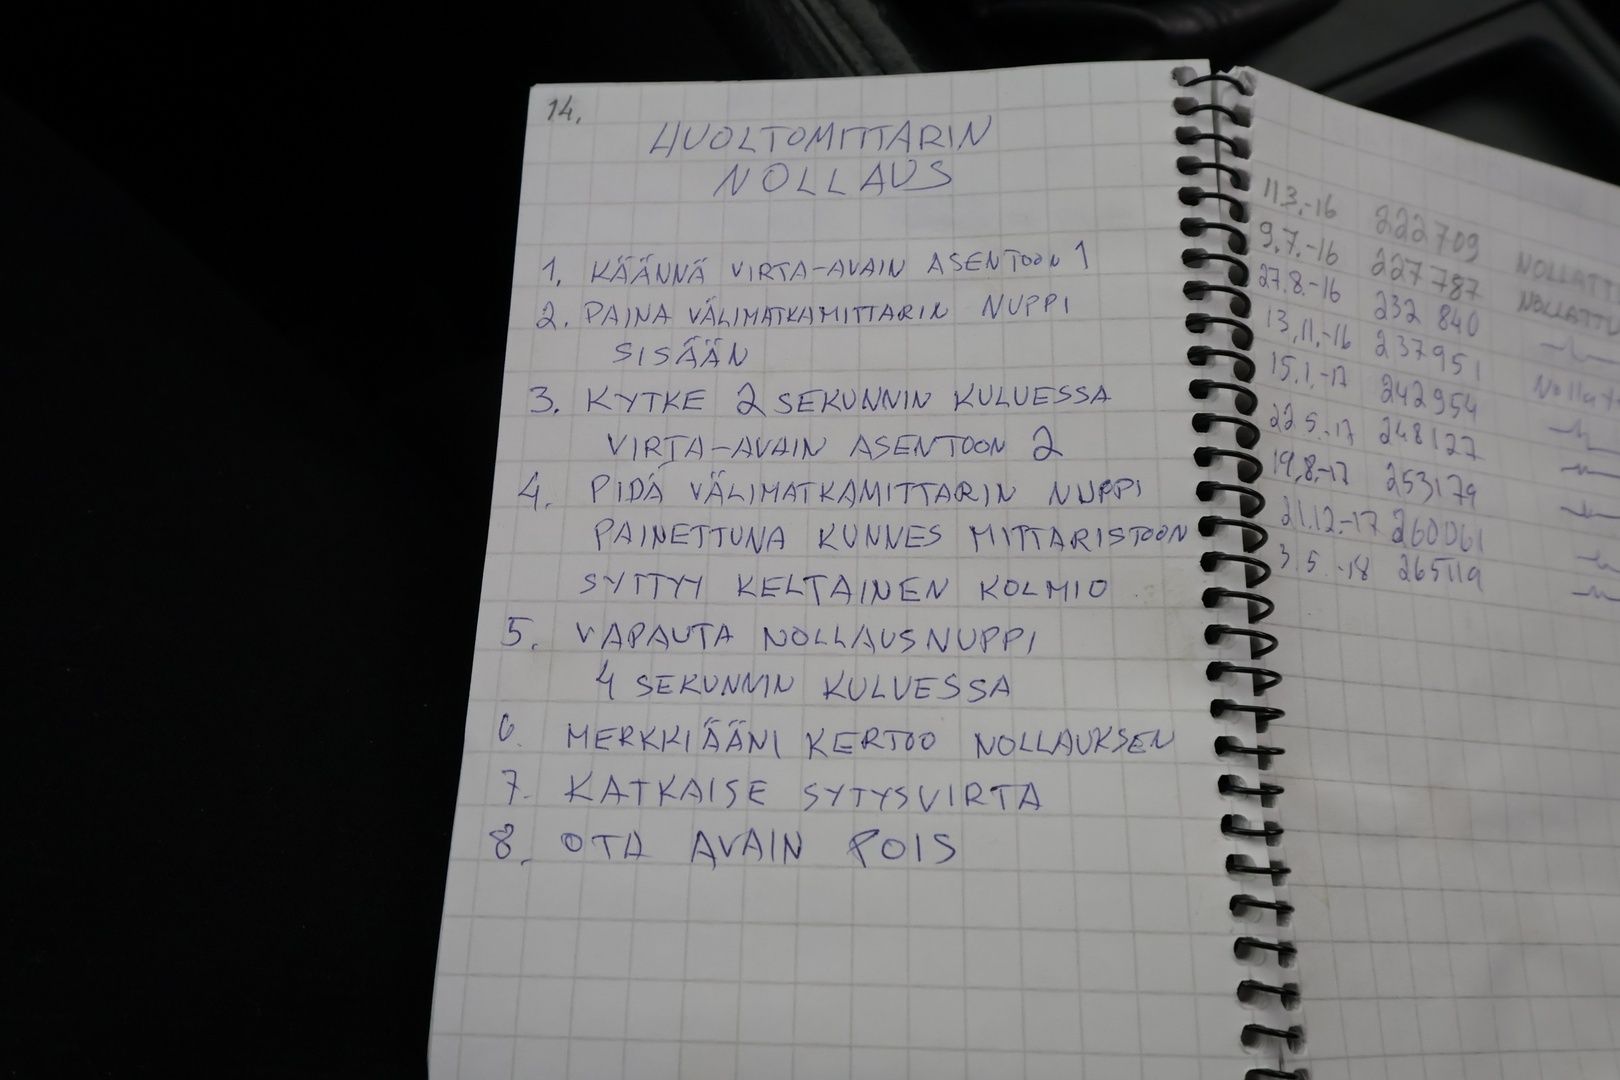 14.
HUOLTOMITTARIN
NOLLAUS
1. KÄÄNNÄ VIRTA-AVAIN ASENTOON 1
2. PAINA VÄLIMATKAMITTARIN NUPPI
SISÄÄN
3. KYTKE 2 SEKUNNIN KULUESSA
VIRTA-AVAIN ASENTOON 2
4. PIDÄ VÄLIMATKAMITTARIN NUPPI
PAINETTUNA KUNNES MITTARISTOON
SYTTYY KELTAINEN KOLMIO
5. VAPAUTA NOLLAUSNUPPI
4 SEKUNNIN KULUESSA
6. MERKKIÄÄNI KERTOO NOLLAUKSEN
7. KATKAISE SYTYSVIRTA
8. OTA AVAIN POIS
11.3.-16 222709 NOLLATT
9.7.-16 227787 NOLLATTU
27.8.-16 232 840
13.11.-16 237951 Nollat
15.1.-17 242954
22.5.-17 248127
19.8.-17 253179
21.12.-17 260061
3.5.-18 265119